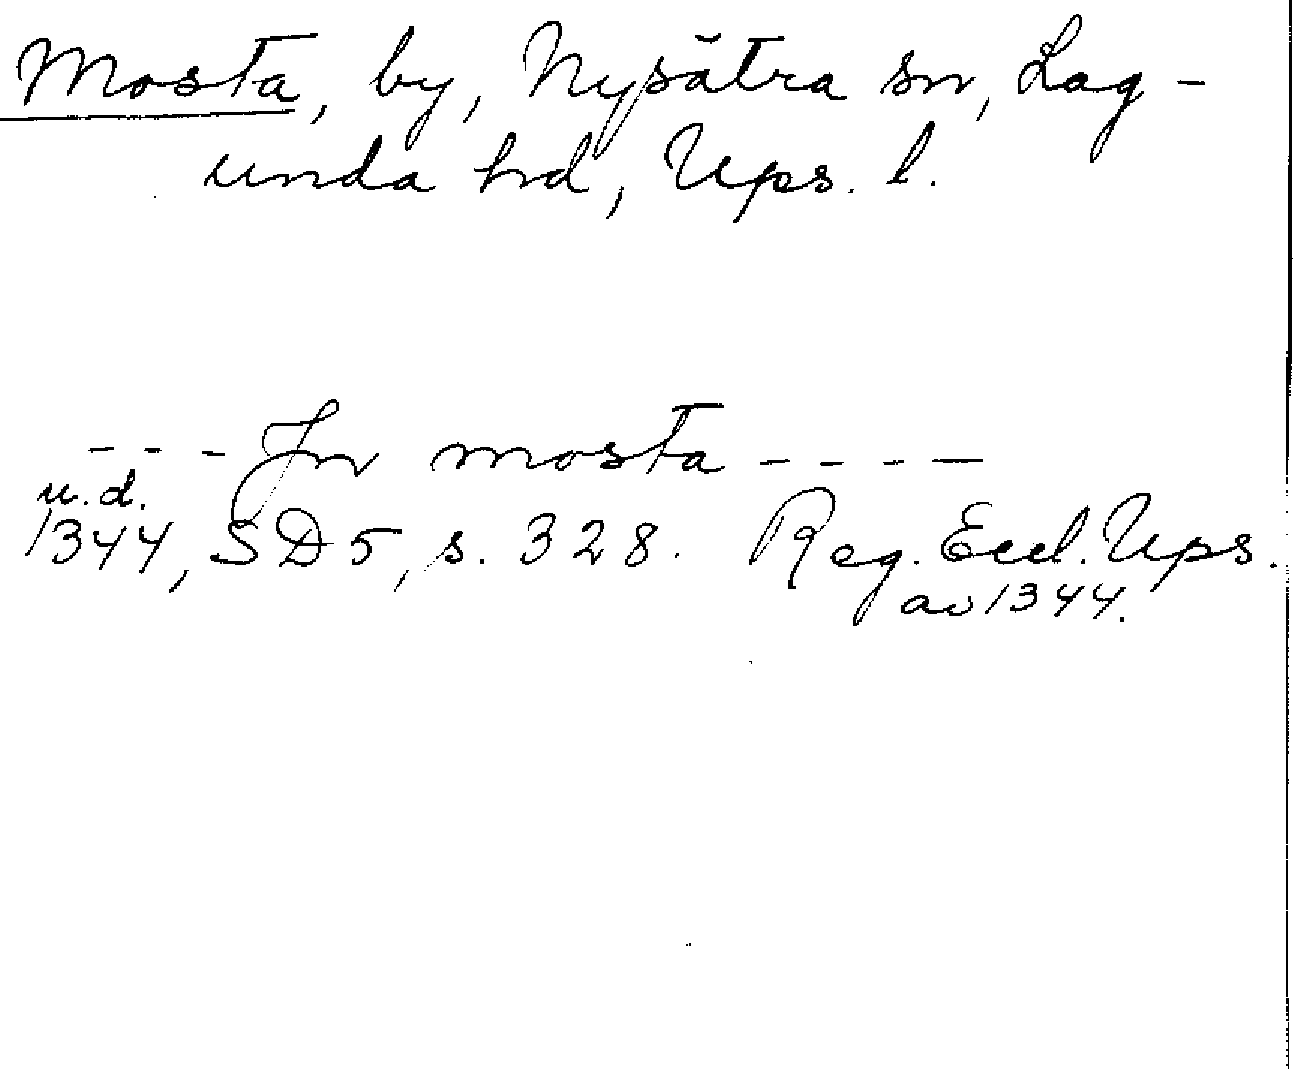 Mosta, by, Nysätra sn, Lag-
unda hd, Ups. l.
- - - Jn mosta - - - -
u.d.
1344, SD5, s. 328. Reg. Eccl. Ups.
av 1344.